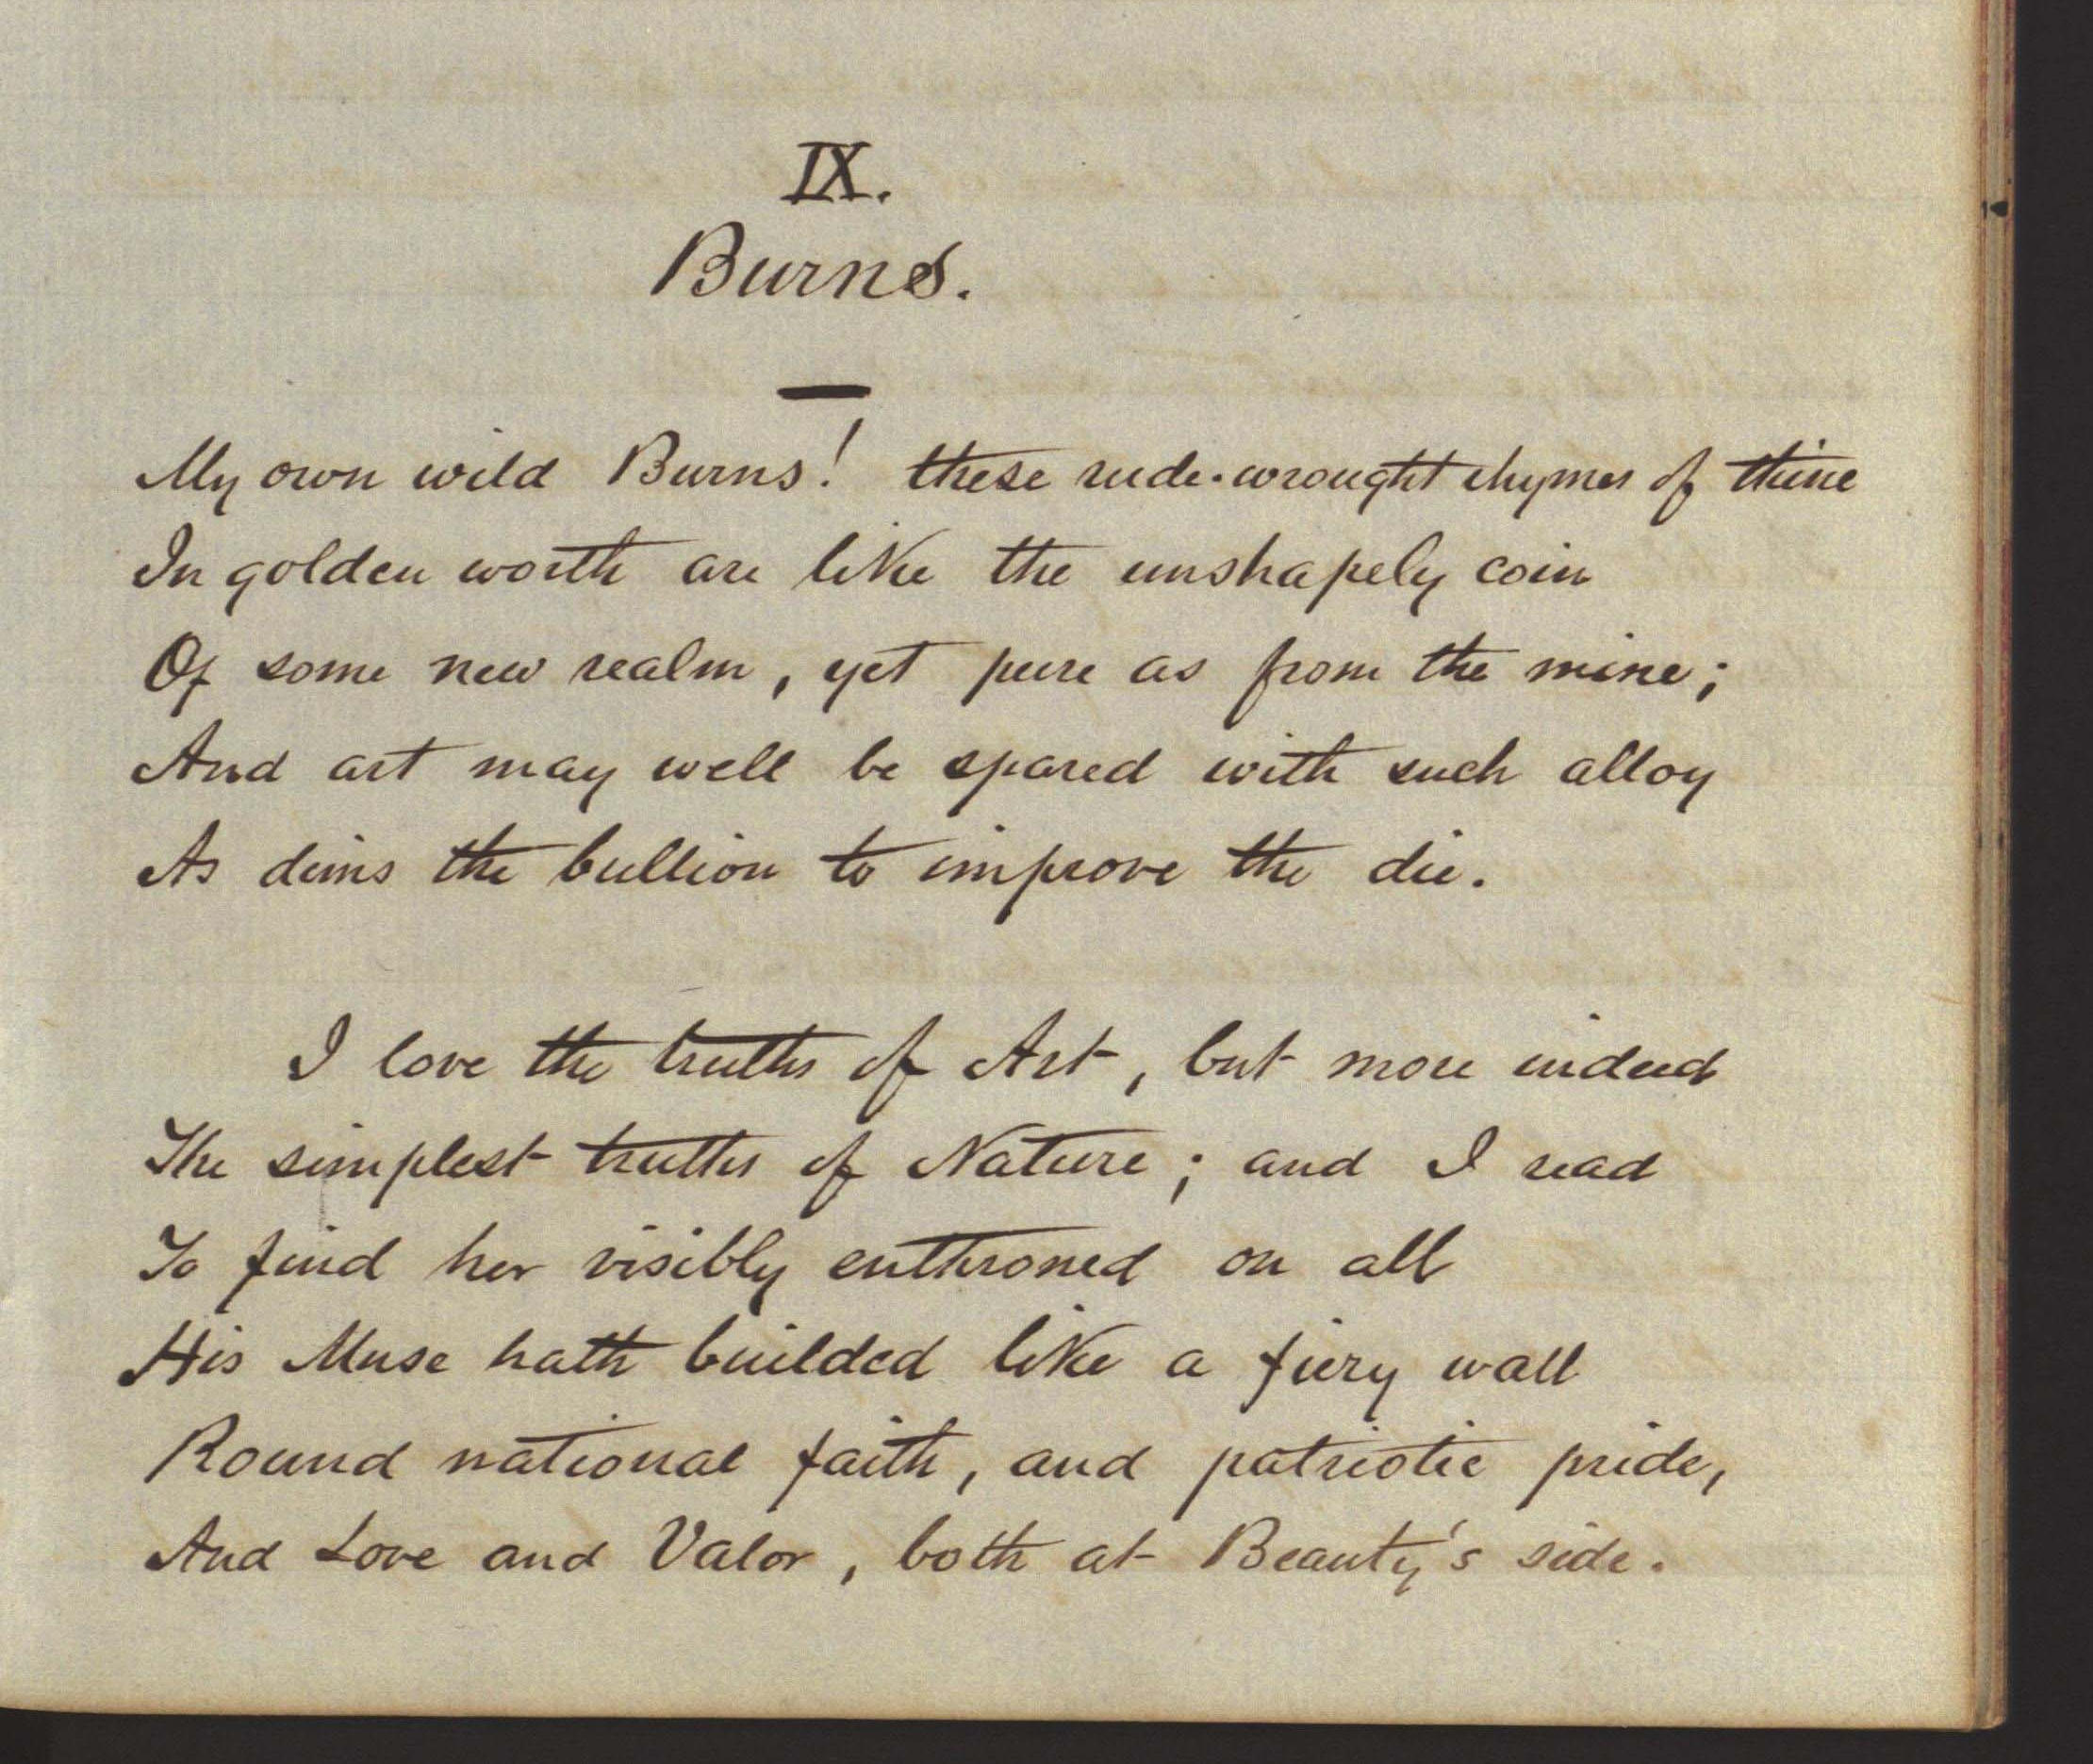 IX.
Burns.
My own wild Burns! these rude-wrought rhymes of thine
In golden worth are like the unshapely coin
Of some new realm, yet pure as from the mine;
And art may well be spared with such alloy
As dims the bullion to improve the die.
I love the truths of Art, but more indeed
The simplest truths of Nature; and I read
To find her visibly enthroned on all
His Muse hath builded like a fiery wall
Round national faith, and patriotic pride,
And Love and Valor, both at Beauty's side.